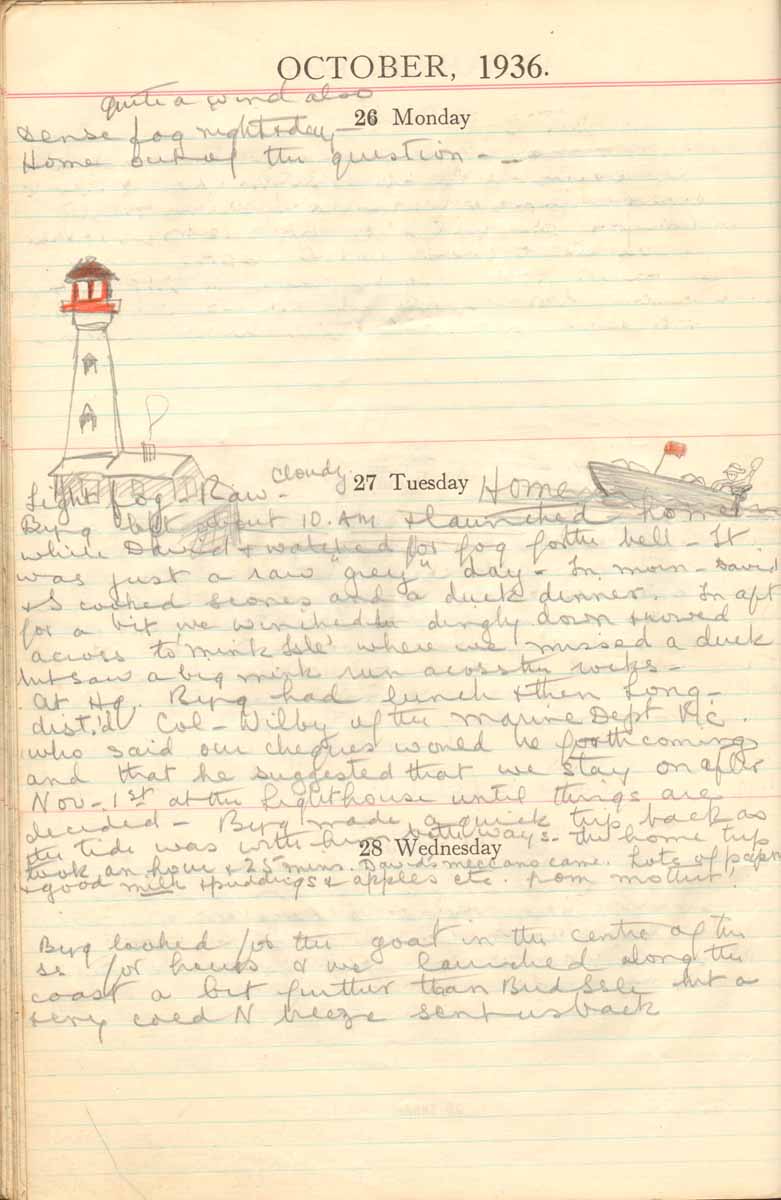 OCTOBER, 1936.
quite a wind also
26 Monday
Dense fog night & day,
Home out of the question - -
cloudy
27 Tuesday Home
Light fog & Raw -
Byrg left about 10. AM & launched home
while David & I watched for fog for the bell - It
was just a raw "grey" day - In morn - David
& I cooked scones and a duck dinner. In aft
for a bit we winched dinghy down & rowed
across to 'Mink Isle' where we missed a duck
but saw a big mink run across the rocks -
At Hq. Byrg had lunch & then Long-
dist'd Col - Wilby of the Marine Dept Vic.
who said our cheques would be forthcoming
and that he suggested that we stay on after
Nov - 1st at the Lighthouse until things are
decided - Byrg made a quick trip back as
the tide was with him both ways - the home trip
28 Wednesday
took an hour & 25 mins. David's meccano came. Lots of papers
& good milk & puddings & apples etc. from mother!
Byrg looked for the goat in the centre of the
Is for hours & we launched along the
coast a bit further than Bird Isle but a
very cold N breeze sent us back